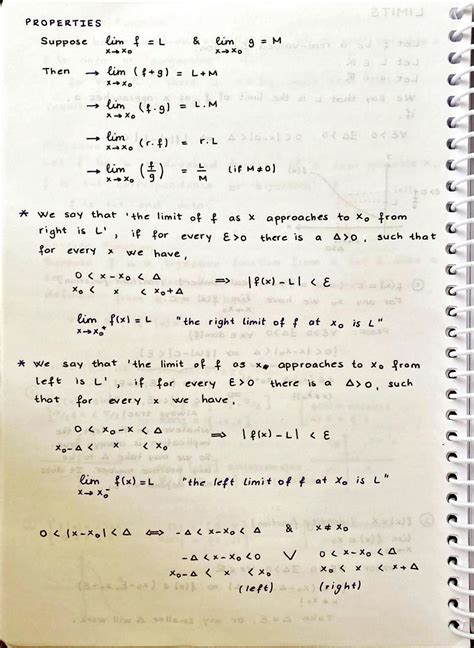 PROPERTIES
Suppose lim f = L & lim g = M
x→x₀ x→x₀
Then → lim (f+g) = L+M
x→x₀
→ lim (f.g) = L.M
x→x₀
→ lim (r.f) = r.L
x→x₀
→ lim (f/g) = L/M (if M≠0)
x→x₀
* We say that 'the limit of f as x approaches to x₀ from
right is L', if for every ε>0 there is a Δ>0, such that
for every x we have,
0 < x-x₀ < Δ ⟹ |f(x)-L| < ε
x₀ < x < x₀+Δ
lim f(x) = L "the right limit of f at x₀ is L"
x→x₀⁺
* We say that 'the limit of f as x₀ approaches to x₀ from
left is L', if for every ε>0 there is a Δ>0, such
that for every x we have,
0 < x₀-x < Δ ⟹ |f(x)-L| < ε
x₀-Δ < x < x₀
lim f(x) = L "the left limit of f at x₀ is L"
x→x₀⁻
0 < |x-x₀| < Δ ⟺ -Δ < x-x₀ < Δ & x≠x₀
-Δ < x-x₀ < 0 ∨ 0 < x-x₀ < Δ
x₀-Δ < x < x₀ x₀ < x < x+Δ
(left) (right)